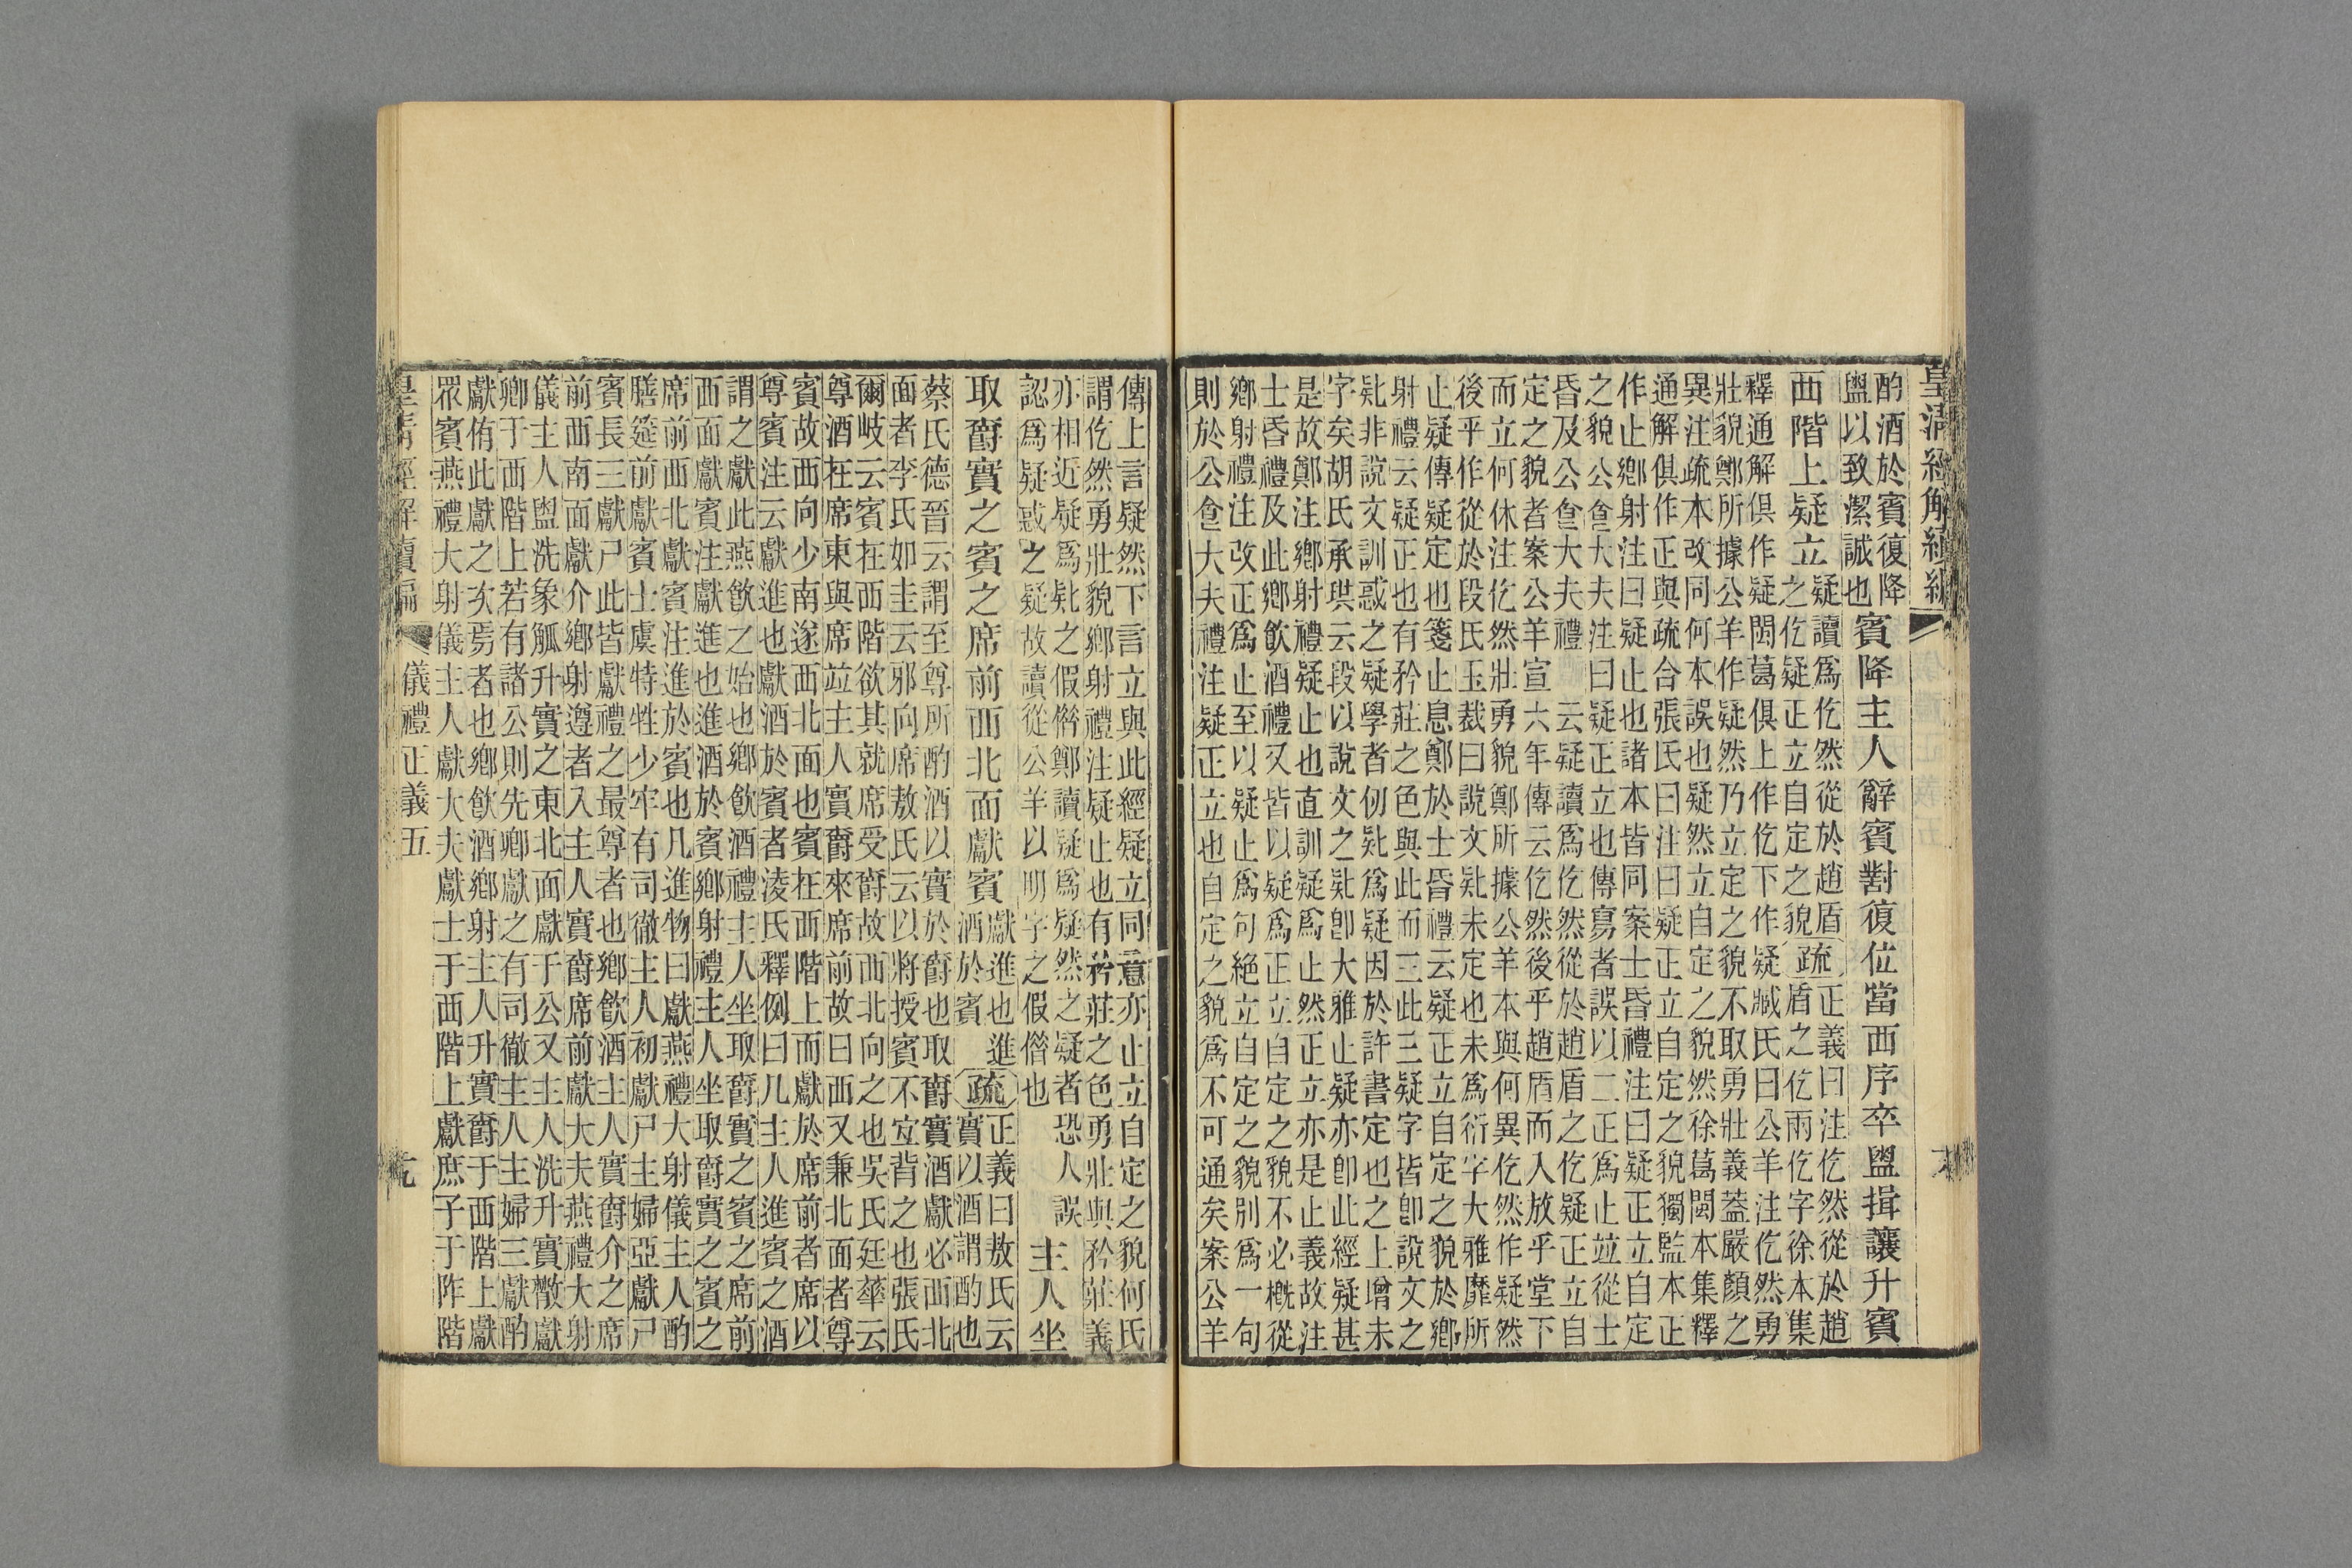 皇清經解續編
酌酒於賓復降
盥以致潔誠也
賓降主人辭賓對復位當西序卒盥揖讓升賓
西階上疑立
疑讀爲仡然從於趙盾
之仡疑正立自定之貌
疏
正義曰注仡然從於趙
盾之仡兩仡字徐本集
釋通解俱作疑閩葛俱上作仡下作疑臧氏曰公羊注仡然勇
壯貌鄭所據公羊作疑然乃立定之貌不取勇壯義蓋嚴顏之
異注疏本改同何本誤也疑然立自定之貌然徐葛閩本集釋
通解俱作正與疏合張氏曰注曰疑正立自定之貌獨監本正
作止鄉射注曰疑止也諸本皆同案士昏禮注曰疑正立自定
之貌公食大夫注曰疑正立也傳寫者誤以二正爲止竝從士
昏及公食大夫禮云疑讀爲仡然從於趙盾之仡疑正立自
定之貌者案公羊宣六年傳云仡然後乎趙盾而入放乎堂下
而立何休注仡然壯勇貌鄭所據公羊本與何異仡然作疑然
後乎作從於段氏玉裁曰說文𠤕未定也未爲衍字大雅靡所
止疑傳疑定也箋止息鄭於士昏禮云疑正立自定之貌於鄉
射禮云疑正也有矜莊之色與此而三此三疑字皆卽說文之
𠤕非說文訓惑之疑學者仞𠤕爲疑因於許書定也之上增未
字矣胡氏承珙云段以說文之𠤕卽大雅止疑亦卽此經疑甚
是故鄭注鄉射禮疑止也直訓疑爲止然正立亦是止義故注
士昏禮及此鄉飲酒禮又皆以疑爲正立自定之貌不必概從
鄉射禮注改正爲止至以疑止爲句絕立自定之貌別爲一句
則於公食大夫禮注疑正立也自定之貌爲不可通矣案公羊
傳上言疑然下言立與此經疑立同意亦止立自定之貌何氏
謂仡然勇壯貌鄉射禮注疑止也有矜莊之色勇壯與矜莊義
亦相近疑爲𠤕之假借鄭讀疑爲疑然之疑者恐人誤
認爲疑惑之疑故讀從公羊以明字之假借也
主人坐
取爵實之賓之席前西北面獻賓
獻進也進
酒於賓
疏
正義曰敖氏云
實以酒謂酌也
蔡氏德晉云謂至尊所酌酒以實於爵也取爵實酒獻必西北
面者李氏如圭云邪向席敖氏云以將授賓不宜背之也張氏
爾岐云賓在西階欲其就席受爵故西北向之也吳氏廷華云
尊酒在席東與席竝主人實爵來席前故曰西又兼北面者尊
賓故西向少南遂西北面也賓在西階上而獻於席前者席以
尊賓注云獻進也獻酒於賓者淩氏釋例曰凡主人進賓之酒
謂之獻此燕飲之始也鄉飲酒禮主人坐取爵實之賓之席前
西面獻賓注獻進也進酒於賓鄉射禮主人坐取爵實之賓之
席前西北獻賓注進於賓也凡進物曰獻燕禮大射儀主人酌
膳筵前獻賓士虞特牲少牢有司徹主人初獻尸主婦亞獻尸
賓長三獻尸此皆獻禮之最尊者也鄉飲酒主人實爵介之席
前西南面獻介鄉射遵者入主人實爵席前獻大夫燕禮大射
儀主人盥洗象觚升實之東北面獻于公又主人洗升實散獻
卿于西階上若有諸公則先卿獻之有司徹主人主婦三獻酌
獻侑此獻之次焉者也鄉飲酒鄉射主人升實爵于西階上獻
眾賓燕禮大射儀主人獻大夫獻士于西階上獻庶子于阼階
皇清經解續編
儀禮正義五